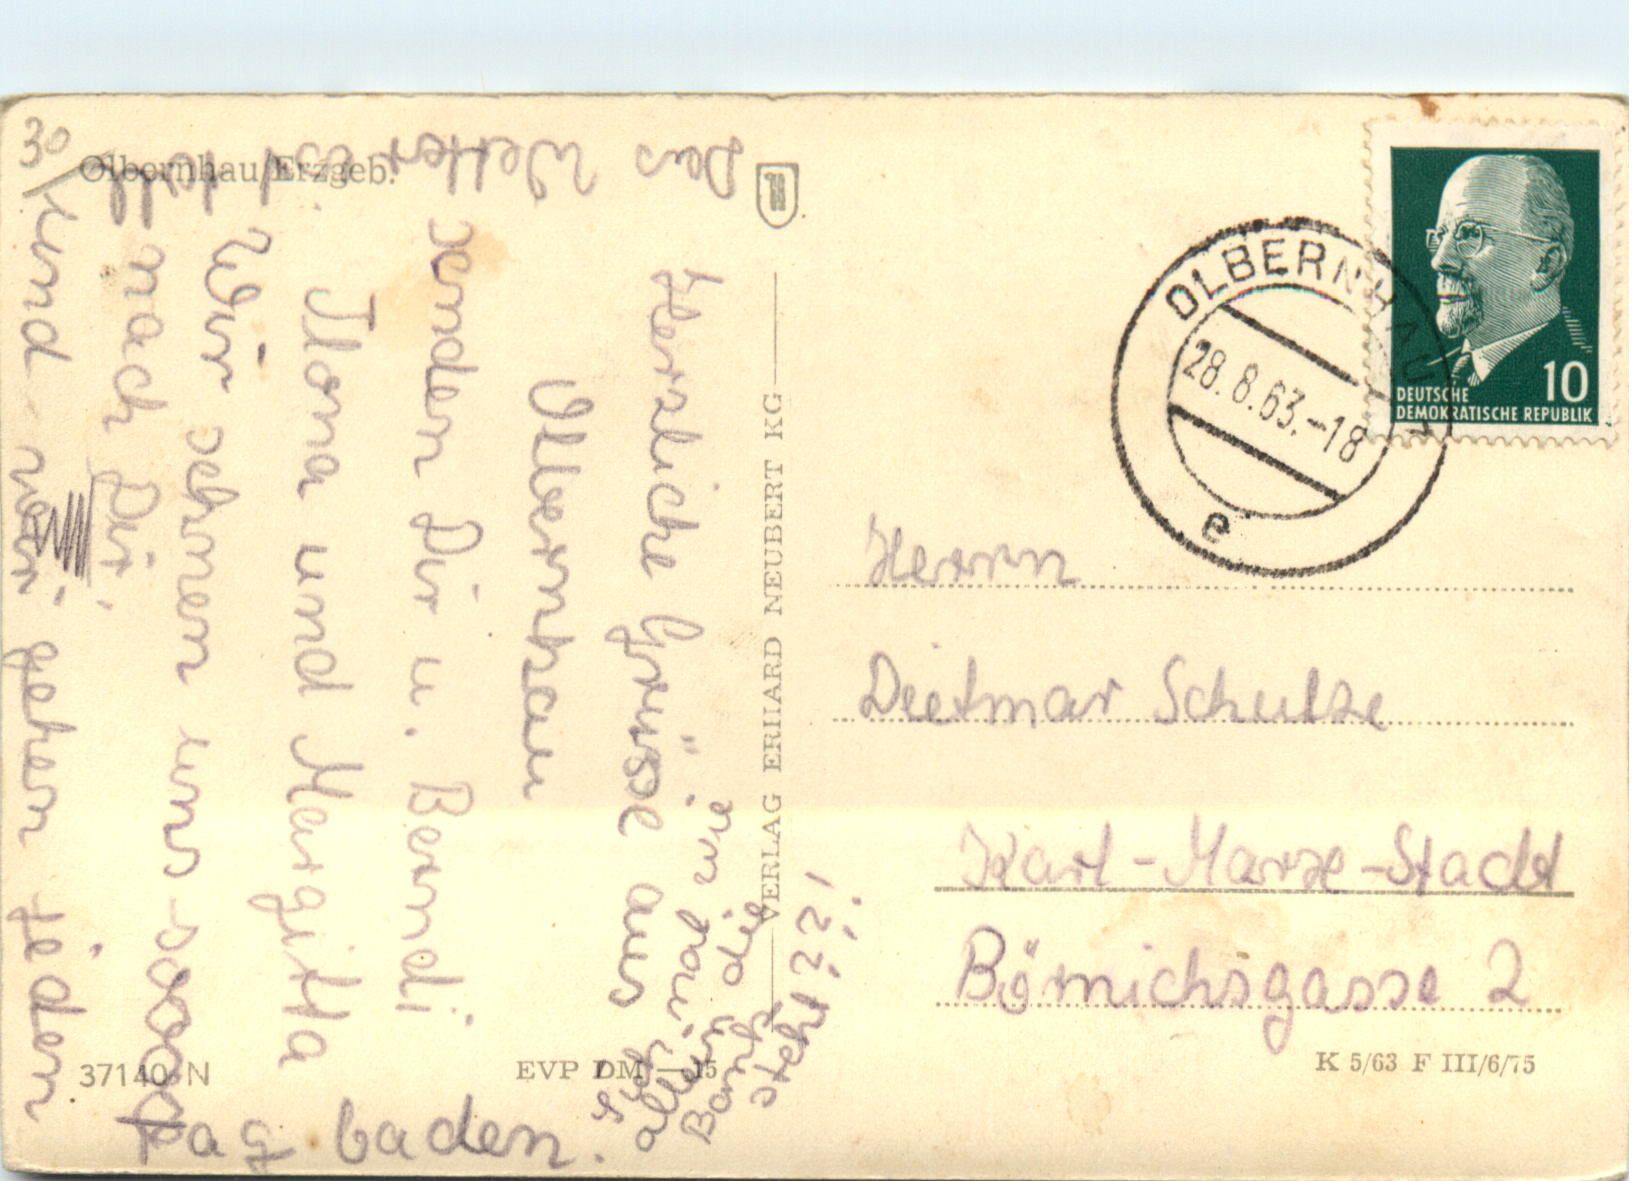 Olbernhau/Erzgeb.
Herzliche Grüße aus
Olbernhau
senden Dir u. Berndi
Ilona und Margitta
Wir sehnen uns soooo
nach Dir,
und wir gehen jeden
Tag baden.
Das Wetter ist toll
wie
allein die
Bank
steht???!
30
37140 N
EVP DM —15
VERLAG ERHARD NEUBERT KG
OLBERNHAU 1
28.8.63.-18
e
DEUTSCHE
DEMOKRATISCHE REPUBLIK
10
Herrn
Dietmar Schulze
Karl-Marx-Stadt
Börnichsgasse 2
K 5/63 F III/6/75